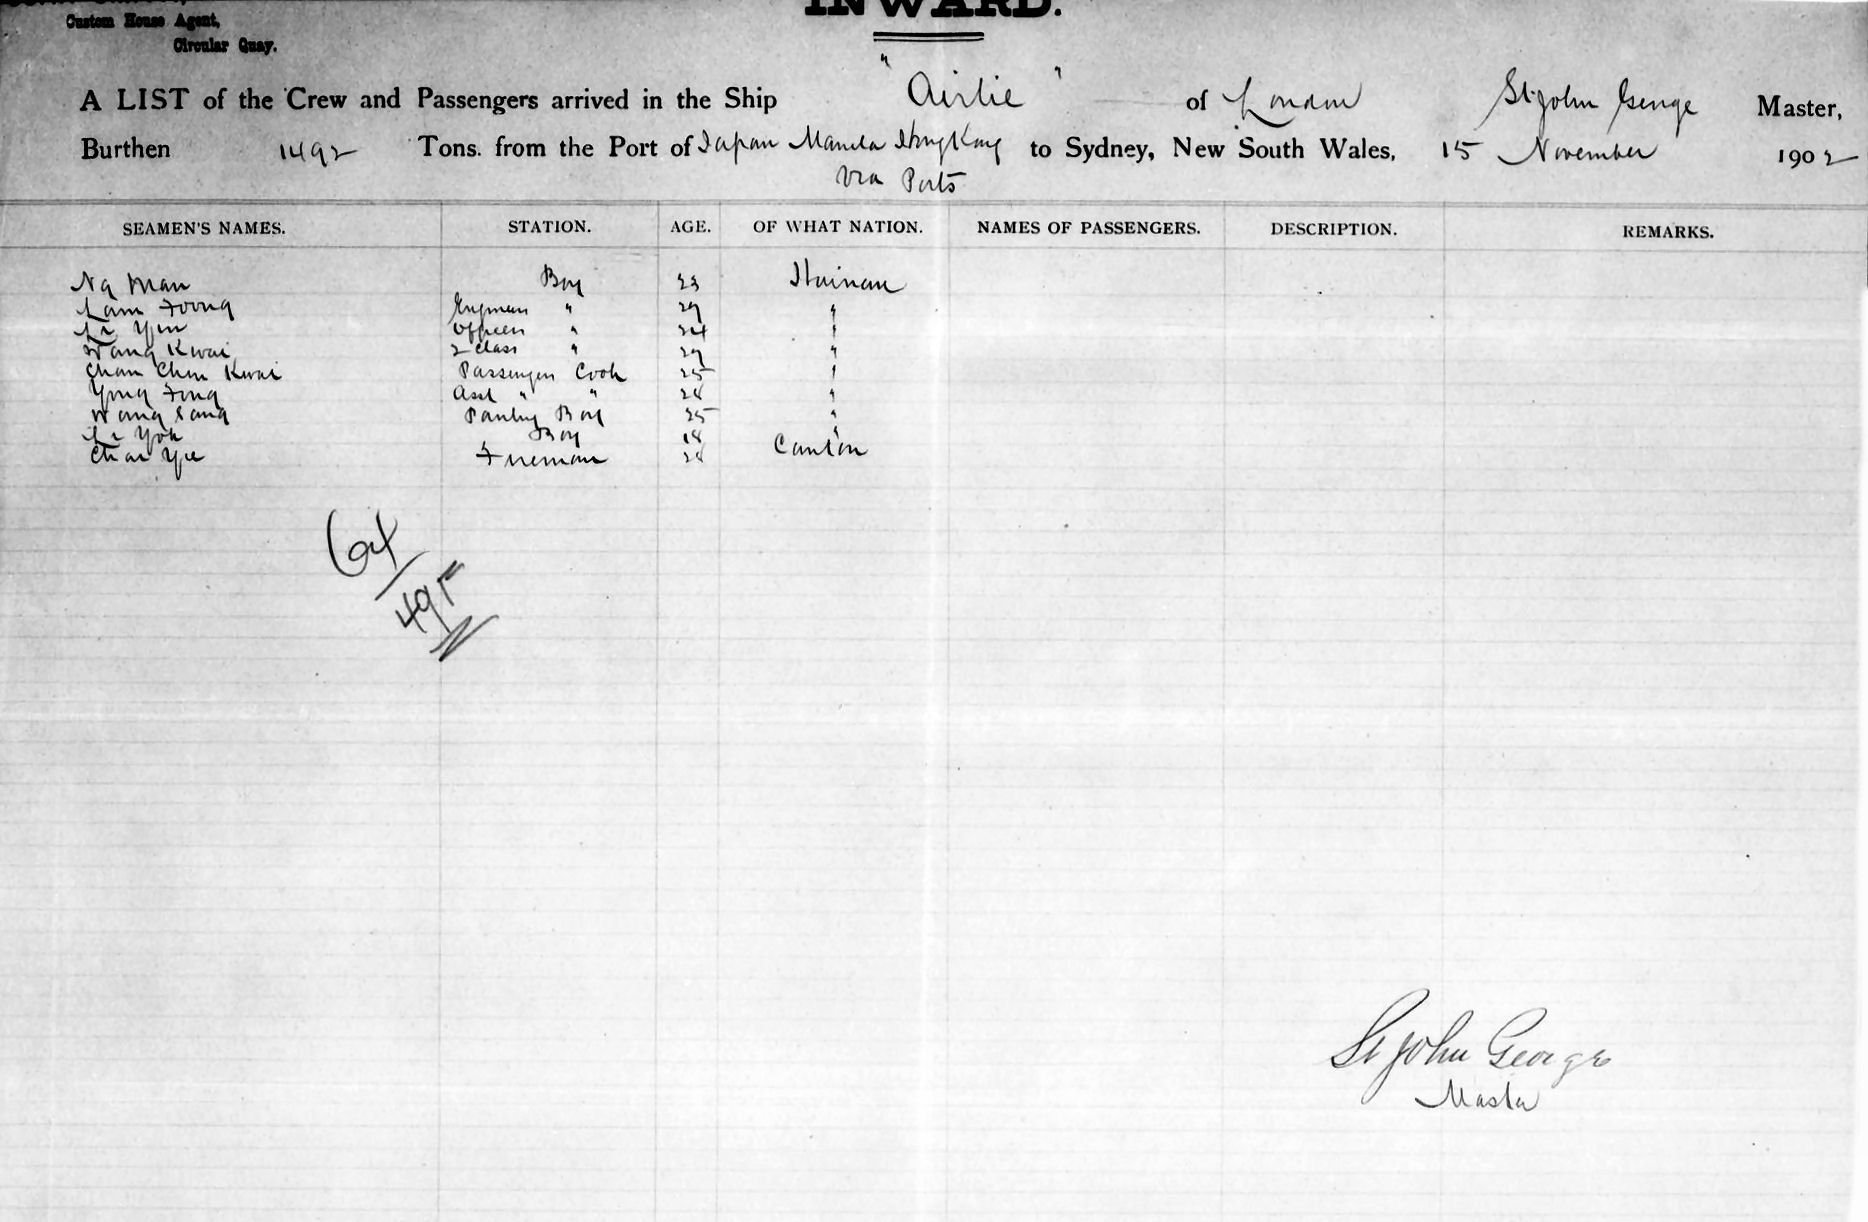 INWARD.
Custom House Agent,
Circular Quay.
A LIST of the Crew and Passengers arrived in the Ship "Airlie" of London St John George Master,
Burthen 1492 Tons. from the Port of Japan Manila HongKong to Sydney, New South Wales, 15 November 1902
Via Ports
SEAMEN'S NAMES. STATION. AGE. OF WHAT NATION. NAMES OF PASSENGERS. DESCRIPTION. REMARKS.
Ng Man Boy 23 Hainan
Lam Foong " 29 "
Li Yin Officers " 24 "
Wang Kwai 2 Class " 29 "
Chan Chin Kwai Passenger Cook 25 "
Yong Fong Asst " " 28 "
Wang Sang Pantry Boy 25 "
Li Yok Boy 18 "
Chan Yee Fireman 28 Canton
64
495
St John George
Master